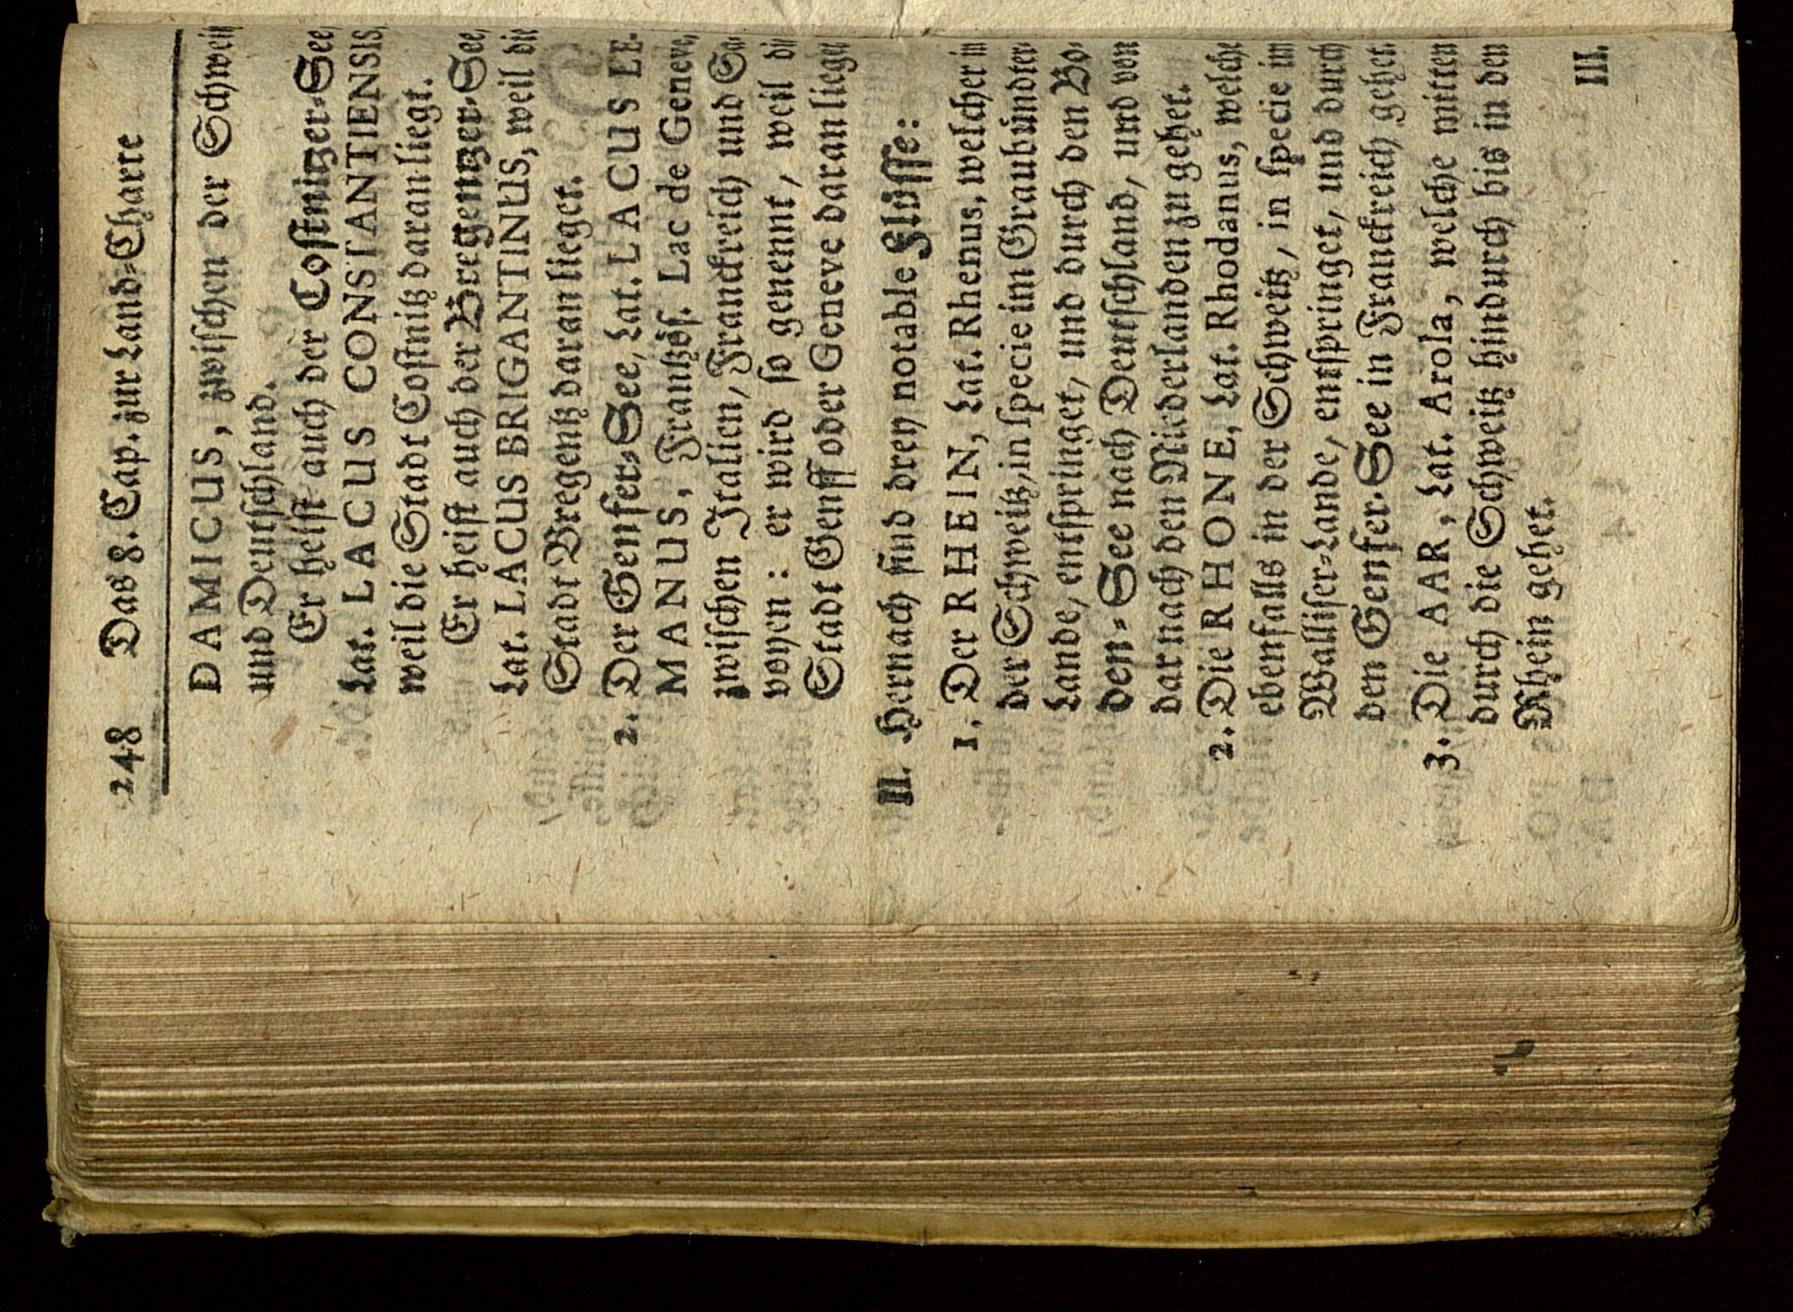 248 Das 8. Cap. zur Land-Charte
DAMICUS, zwischen der Schweitz
und Deutschland.
Er heist auch der Costnitzer-See,
Lat. LACUS CONSTANTIENSIS,
weil die Stadt Costnitz daran liegt.
Er heist auch der Bregentzer-See,
Lat. LACUS BRIGANTINUS, weil die
Stadt Bregentz daran lieget.
2. Der Genfer-See, Lat. LACUS LE-
MANUS, Frantzös. Lac de Geneve,
zwischen Italien, Franckreich und Sa-
voyen: er wird so genennt, weil die
Stadt Genff oder Geneve daran lieget.
II. Hernach sind drey notable Flüsse:
1. Der RHEIN, Lat. Rhenus, welcher in
der Schweitz, in specie im Graubündter-
Lande, entspringet, und durch den Bo-
den-See nach Deutschland, und von
dar nach den Niederlanden zu gehet.
2. Die RHONE, Lat. Rhodanus, welche
ebenfalls in der Schweitz, in specie im
Walliser-Lande, entspringet, und durch
den Genfer-See in Franckreich gehet.
3. Die AAR, Lat. Arola, welche mitten
durch die Schweitz hindurch bis in den
Rhein gehet.
III.